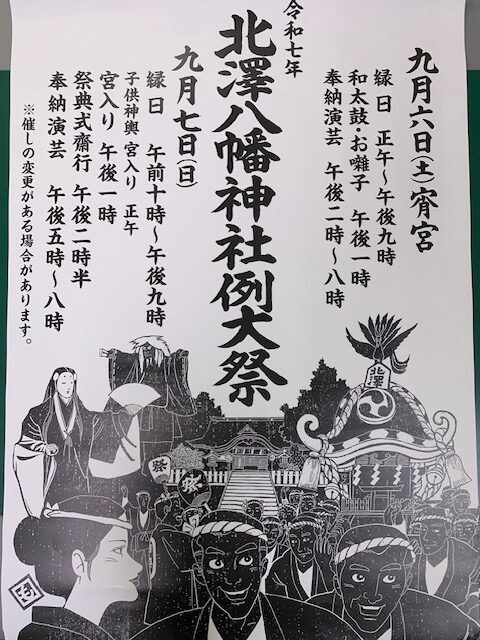 令和七年
北澤八幡神社例大祭
九月六日(土)宵宮
縁日 正午〜午後九時
和太鼓・お囃子 午後一時
奉納演芸 午後二時〜八時
九月七日(日)
縁日 午前十時〜午後九時
子供神輿 宮入り 正午
宮入り 午後一時
祭典式齋行 午後二時半
奉納演芸 午後五時〜八時
※催しの変更がある場合があります。
北澤
祭
祭